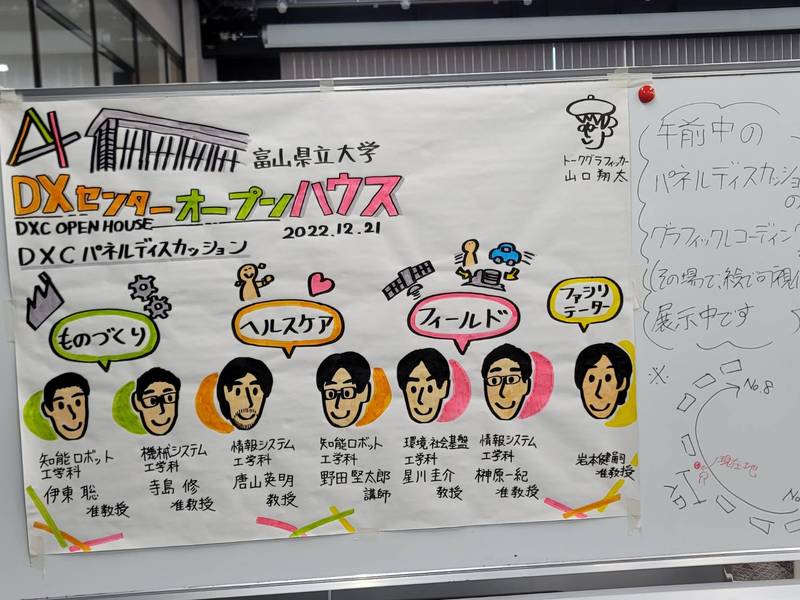 富山県立大学
DXセンターオープンハウス
DXC OPEN HOUSE
2022.12.21
DXCパネルディスカッション
トークグラフィッカー
山口翔太
ものづくり
ヘルスケア
フィールド
ファシリ
テーター
知能ロボット
工学科
伊東 聡
准教授
機械システム
工学科
寺島 修
准教授
情報システム
工学科
唐山英明
教授
知能ロボット
工学科
野田堅太郎
講師
環境・社会基盤
工学科
星川圭介
教授
情報システム
工学科
榊原一紀
准教授
岩本健嗣
准教授
午前中の
パネルディスカッション
の
グラフィックレコーディング
(その場で絵で可視化
展示中です
※
No.8
現在地
No.